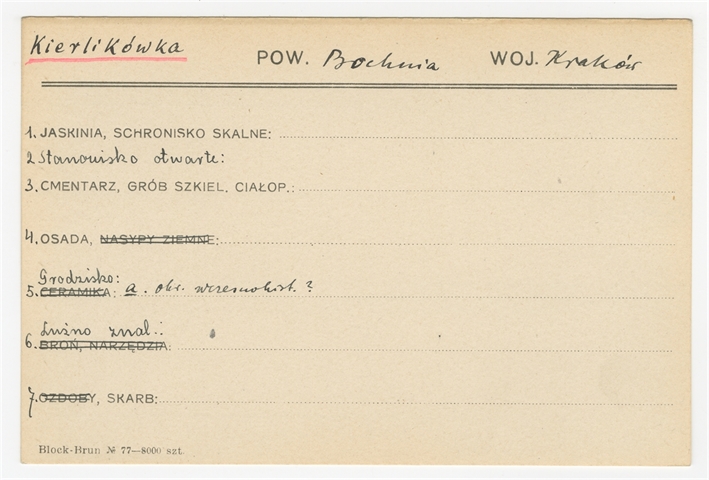 Kierlikówka POW. Bochnia WOJ. Kraków
1. JASKINIA, SCHRONISKO SKALNE:
2. Stanowisko otwarte:
3. CMENTARZ, GRÓB SZKIEL. CIAŁOP.:
4. OSADA, NASYPY ZIEMNE:
Grodzisko:
5. CERAMIKA: a. okr. wczesnohist.?
Luźno znal.:
6. BROŃ, NARZĘDZIA:
7. OZDOBY, SKARB:
Block-Brun № 77—8000 szt.